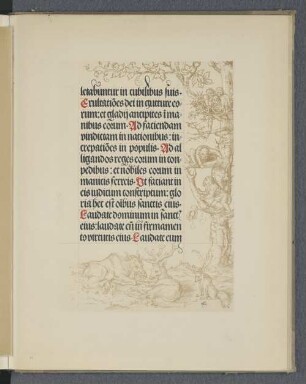 letabuntur in cubilibus suis.
Exultatiões dei in gutture eo
rum: et gladij ancipites ī ma
nibus eorum. Ad faciendam
vindictam in nationibus: in
crepatiões in populis. Ad al
ligandos reges eorum in com
pedibus: et nobiles eorum in
manicis ferreis. Ut faciant in
eis iudicium conscriptum: glo
ria hec est oībus sanctis eius.
Laudate dominum in sanct'
eius: laudate eū in firmamen
to virtutis eius. Laudate eum